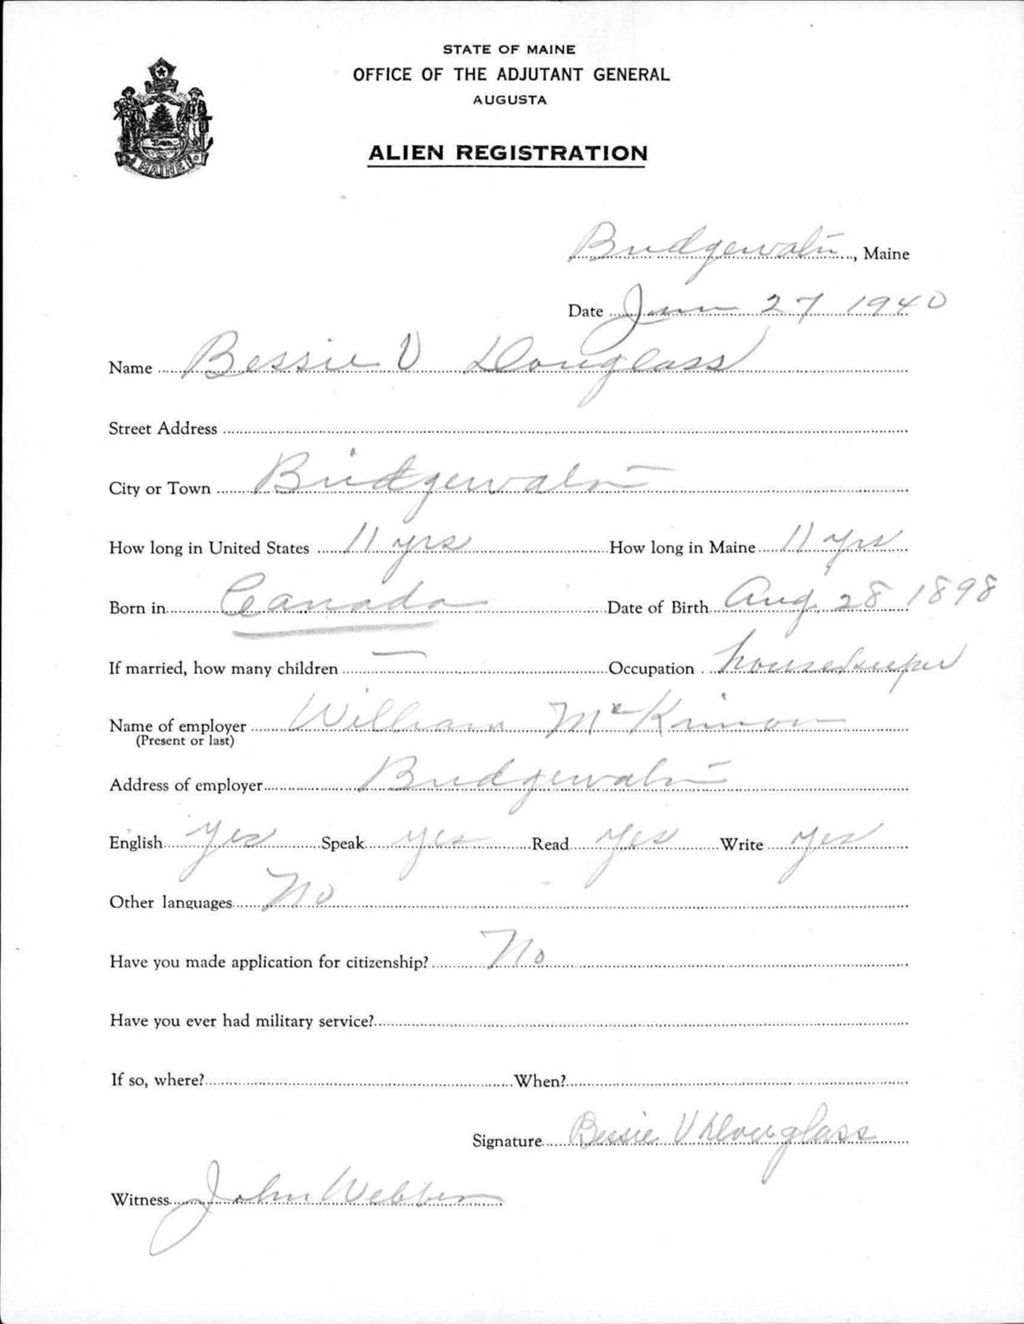 STATE OF MAINE
OFFICE OF THE ADJUTANT GENERAL
AUGUSTA
ALIEN REGISTRATION
MAINE
Bridgewater, Maine
Date June 27 1940
Name Bessie V Douglass
Street Address
City or Town Bridgewater
How long in United States 11 yrs How long in Maine 11 yrs
Born in Canada Date of Birth Aug 28 1898
If married, how many children — Occupation housekeeper
Name of employer William McKinnon
(Present or last)
Address of employer Bridgewater
English Yes Speak yes Read Yes Write yes
Other languages No
Have you made application for citizenship? No
Have you ever had military service?
If so, where? When?
Signature Bessie V Douglass
Witness John Webber